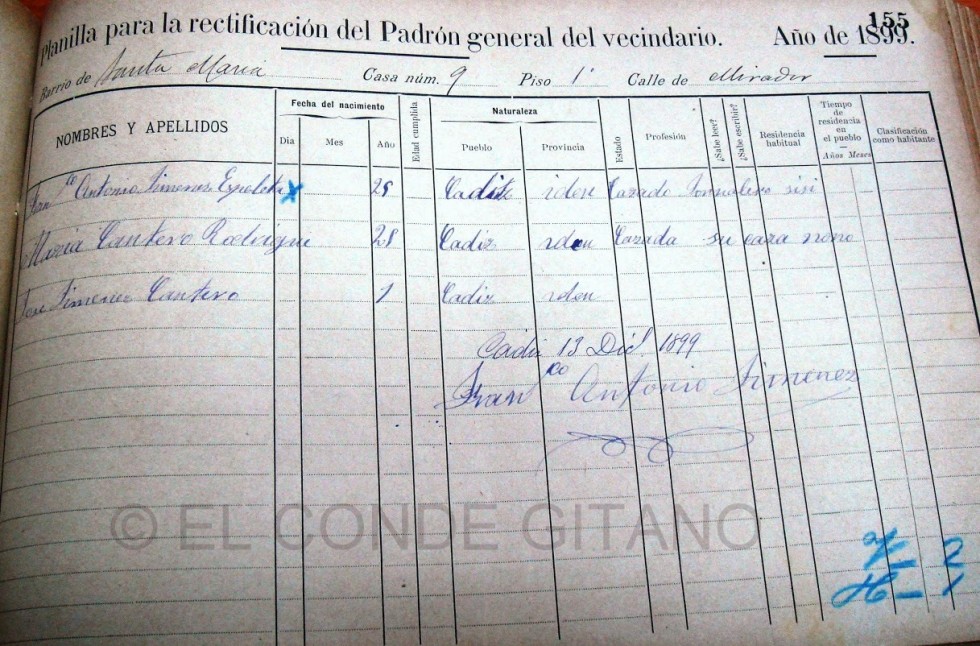 155
Planilla para la rectificación del Padrón general del vecindario. Año de 1899.
Barrio de Santa Maria Casa núm. 9 Piso 1º Calle de Mirador
NOMBRES Y APELLIDOS Fecha del nacimiento Día Mes Año Edad cumplida Naturaleza Pueblo Provincia Estado Profesión ¿Sabe leer? ¿Sabe escribir? Residencia habitual Tiempo de residencia en el pueblo Años Meses Clasificación como habitante
Franco Antonio Jimenez Espeleta x 25 Cadiz iden Cazado Jornalero si si
Maria Cantero Rodrigue 28 Cadiz iden Cazada su caza no no
Jose Jimenez Cantero 1 Cadiz iden
Cadiz 13 Dic. 1899
Franco Antonio Jimenez
© EL CONDE GITANO
V – 2
H – 1